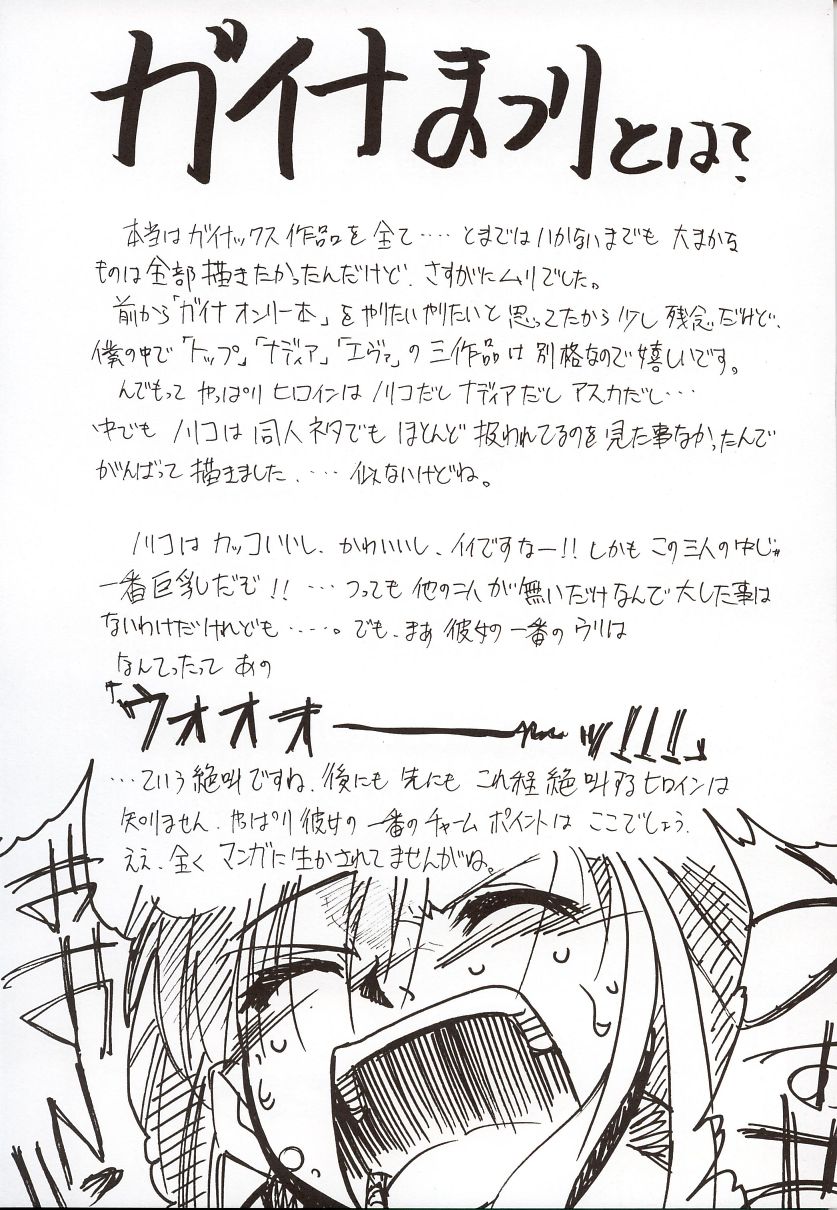 ガイナまつりとは?
本当はガイナックス作品を全て‥‥とまではいかないまでも大まかな
ものは全部描きたかったんだけど、さすがにムリでした。
前から「ガイナオンリー本」をやりたいやりたいと思ってたから少し残念だけど、
僕の中で「トップ」「ナディア」「エヴァ」の三作品は別格なので嬉しいです。
んでもってやっぱりヒロインはノリコだしナディアだしアスカだし‥‥
中でもノリコは同人ネタでもほとんど扱われてるのを見た事なかったんで
がんばって描きました、‥‥似ないけどね。
ノリコはカッコいいし、かわいいし、イイですなー!!しかもこの三人の中じゃ
一番巨乳だぞ!!‥‥つっても他の二人が無いだけなんで大した事は
ないわけだけれども‥‥‥。でも、まあ彼女の一番のウリは
なんてったってあの
「ウォオオーーーッ!!!」
‥‥ていう絶叫ですね、後にも先にもこれ程絶叫するヒロインは
知りません、やっぱり彼女の一番のチャームポイントはここでしょう、
ええ、全くマンガに生かされてませんがね。